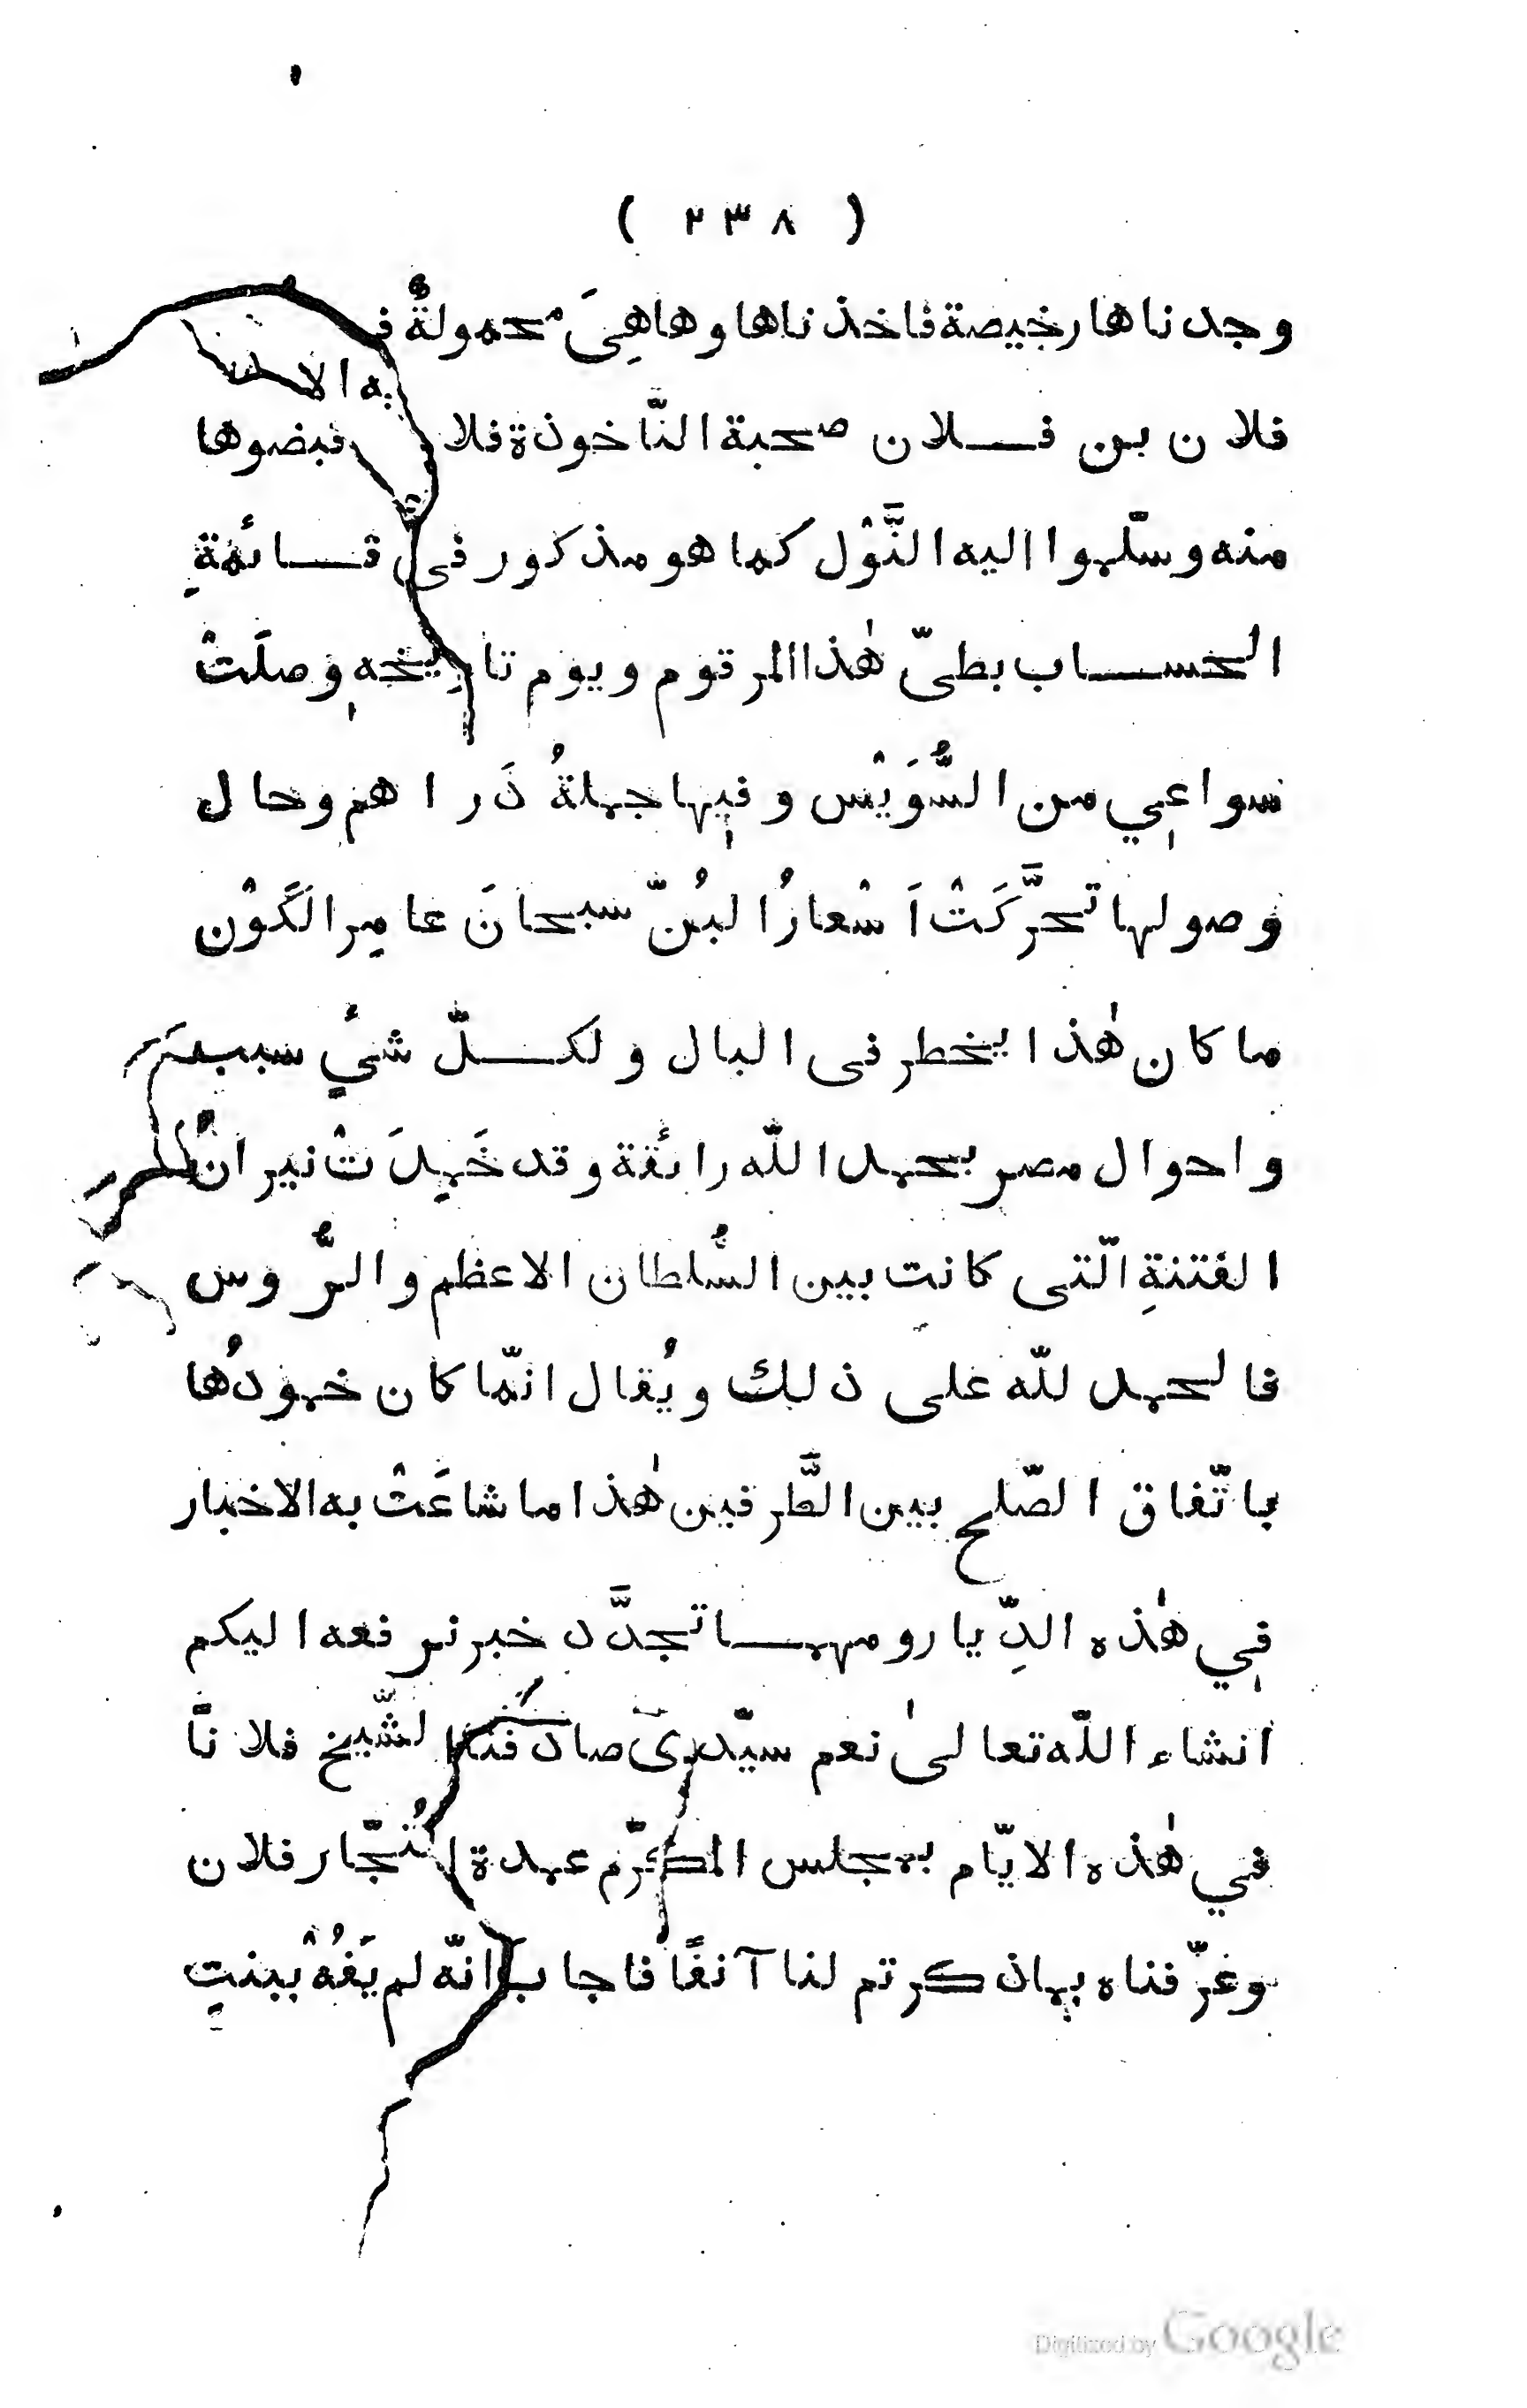 ( ٢٣٨ )
وجدناها رخيصة فاخذناها وهاهِىَ محمولةٌ
فلان بن فلان صحبة النّاخوذة فلا فبضوها
منه وسلّموا اليه النَّوْل كما هو مذكور فى قائمةِ
الحساب بطىّ هٰذا المرقوم ويوم تاريخهٖ وصلَتْ
سواعي من السُّوَيْس وفيها جملةُ دَراهم وحال
وصولها تحرَّكَتْ اَسْعارُ البُنّ سبحانَ عامِر الكَوْن
ما كان هٰذا يخطر فى البال ولكلّ شئٍ سبب
واحوال مصر بحمد اللّه رائقة وقد خَمِدَتْ نيرانُ
الفتنةِ الّتى كانت بين السُّلطان الاعظم والرُّوس
فالحمد للّه على ذلك ويُقال انّما كان خمودُها
باتّفاق الصّلح بين الطَّرفين هٰذا ما شاعَتْ به الاخبار
في هٰذه الدِّيار ومهما تجدَّد خبر نرفعه اليكم
انشاء اللّه تعالىٰ نعم سيّدىَ صادفنا الشّيخ فلانًا
في هٰذه الايّام بمجلس المكرّم عمدة التُّجّار فلان
وعرّفناه بما ذكرتم لنا آنفًا فاجاب انّه لم يَفُهْ ببنتِ
Digitized by Google